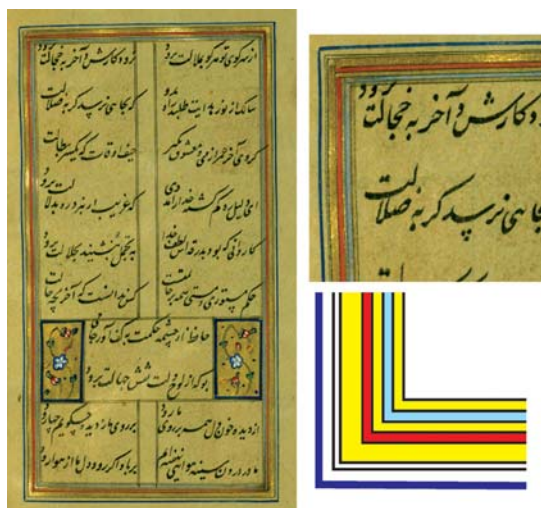 از سر کوی تو هر کو بملالت برود نرود کارش و آخر به خجالت برود
سالک از نور هدایت طلبد راه بدو که بجائی نرسد گر به ضلالت برود
گروی آخر عمر از می و معشوق بگیر حیف اوقات که یکسر ببطالت برود
ای دلیل دل گم گشته خدا را مددی که غریب ار نبرد ره بدلالت برود
کاروانی که بود بدرقه‌اش لطف خدا به تجمل بنشیند بجلالت برود
حکم مستوری و مستی همه بر خاتمتست کس ندانست که آخر بچه حالت برود
حافظ از چشمه حکمت به کف آور جامی
بو که از لوح دلت نقش جهالت برود
از دیده خون دل همه بر روی ما رود بر روی ما ز دیده چگویم چها رود
ما در درون سینه هوائی نهفته‌ایم بر باد اگر رود دل ما زان هوا رود
رود کارش و آخر به خجالت
بجائی نرسد گر به ضلالت